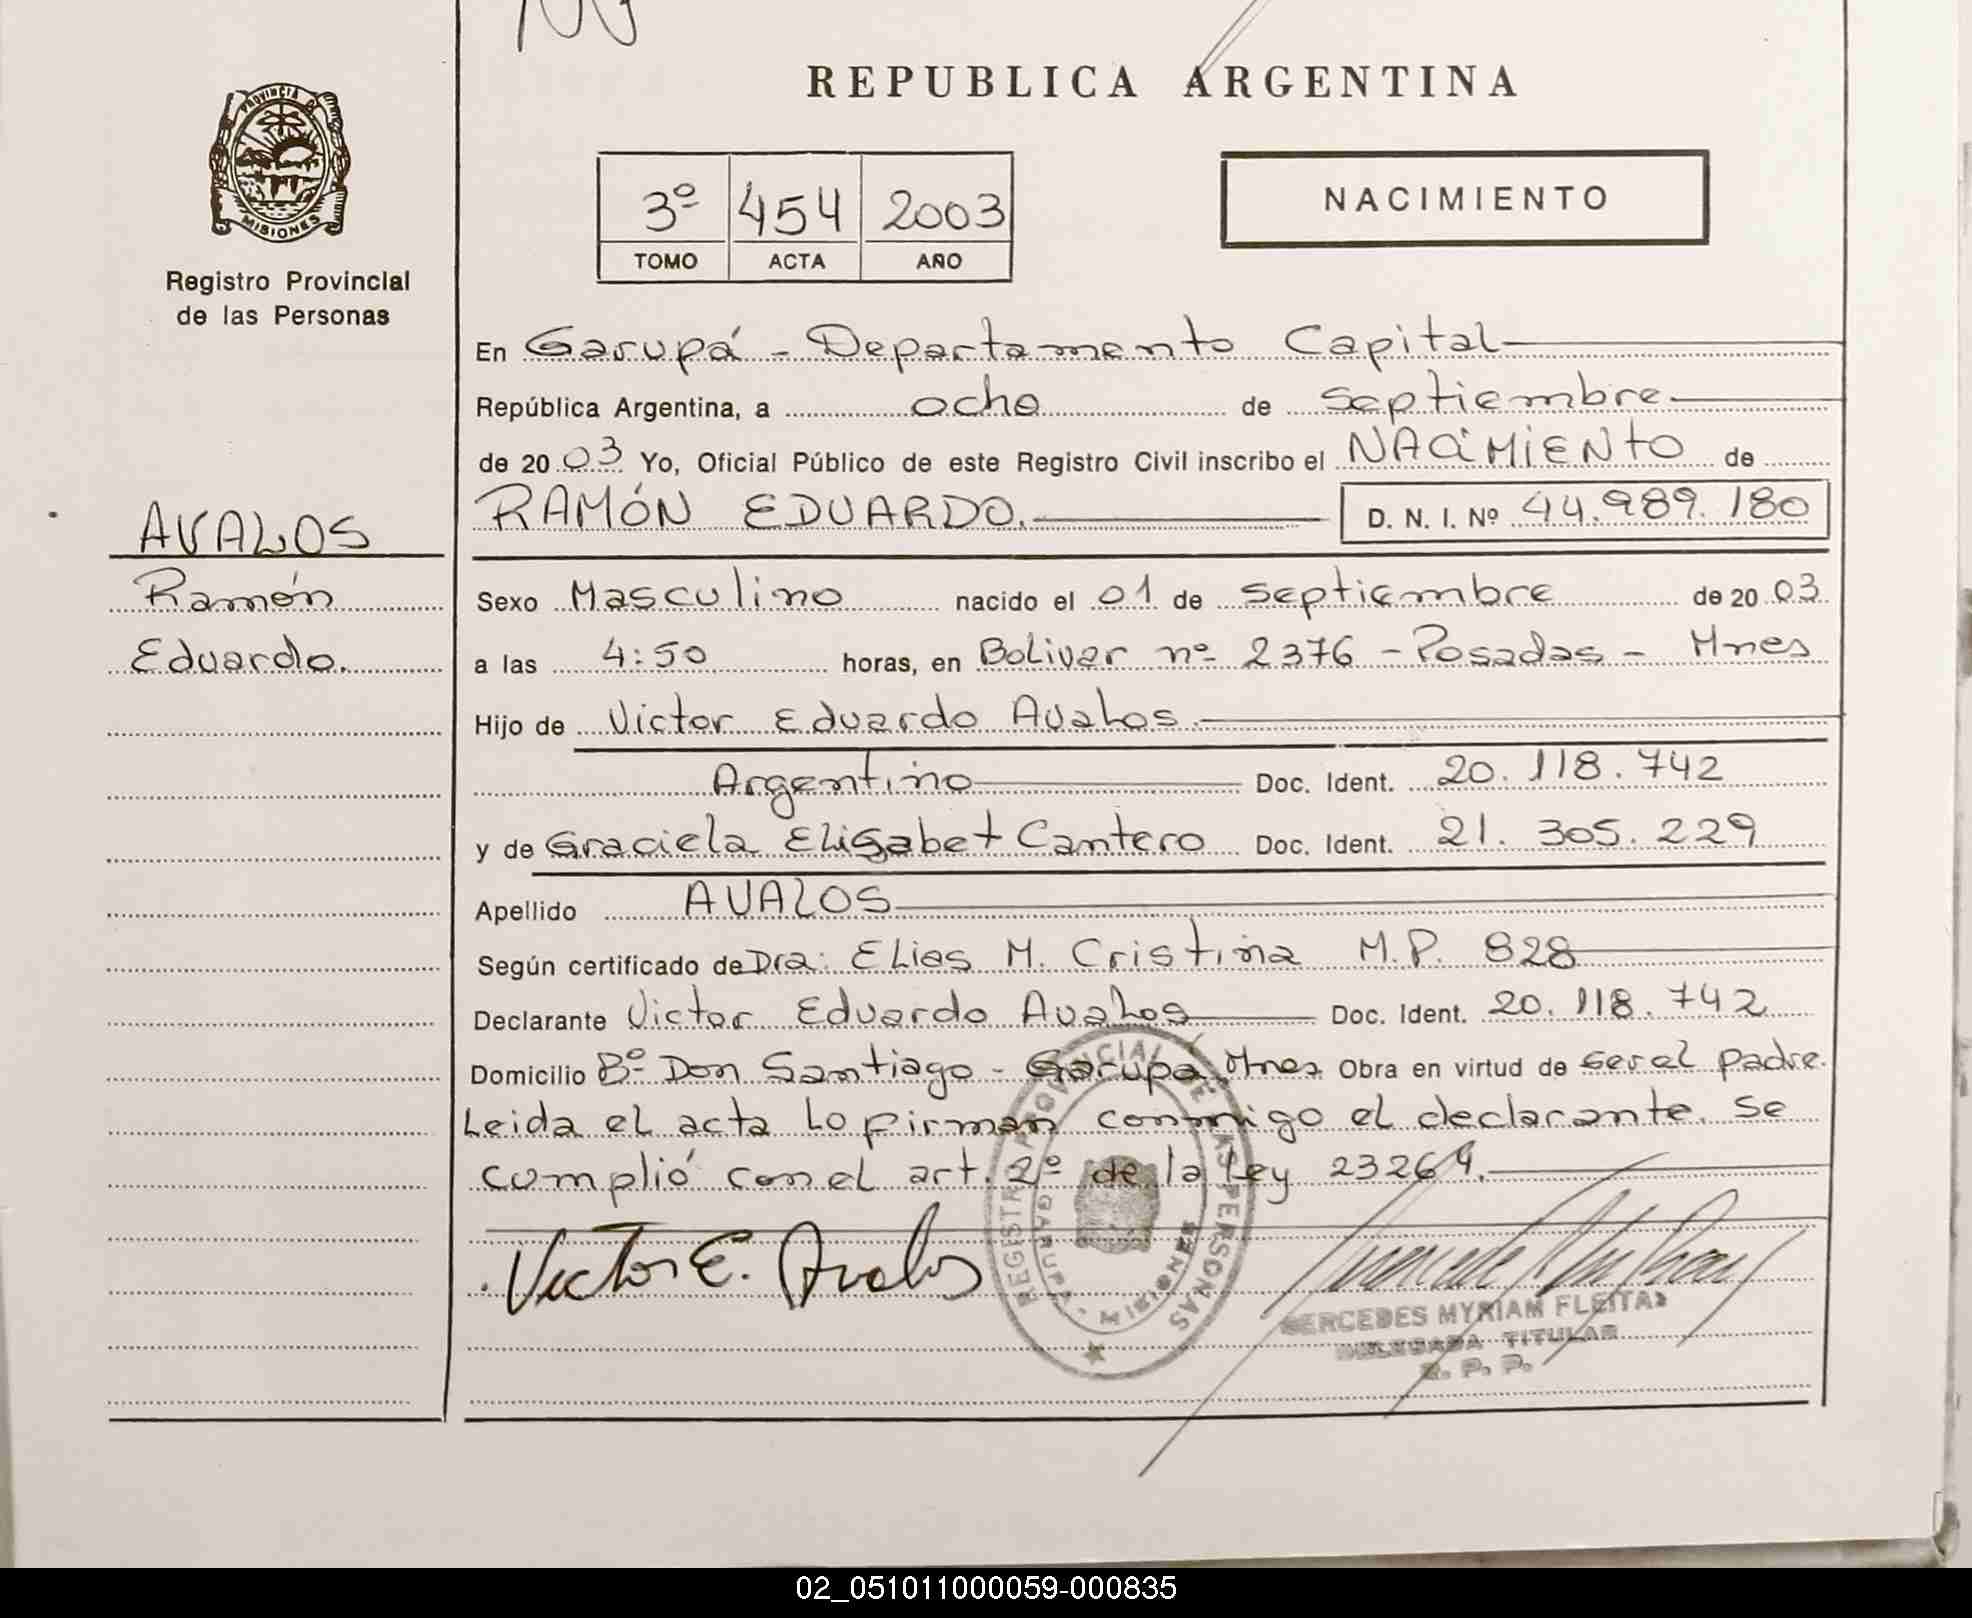 REPUBLICA ARGENTINA
PROVINCIA DE
MISIONES
Registro Provincial
de las Personas
3º 454 2003
TOMO ACTA AÑO
NACIMIENTO
En Garupá - Departamento Capital
República Argentina, a ocho de septiembre
de 2003 Yo, Oficial Público de este Registro Civil inscribo el NACIMIENTO de
RAMÓN EDUARDO. D. N. I. Nº 44.989.180
AVALOS
Ramón
Eduardo.
Sexo Masculino nacido el 01 de septiembre de 2003
a las 4:50 horas, en Bolivar nº 2376 - Posadas - Mnes
Hijo de Victor Eduardo Avalos.
Argentino Doc. Ident. 20.118.742
y de Graciela Elisabet Cantero Doc. Ident. 21.305.229
Apellido AVALOS
Según certificado de Dra: Elias M. Cristina M.P. 828
Declarante Victor Eduardo Avalos Doc. Ident. 20.118.742
Domicilio Bº Don Santiago - Garupá Mnes Obra en virtud de ser el padre.
Leida el acta lo firman conmigo el declarante. Se
cumplió con el art. 2º de la Ley 23264.
Victor E. Avalos
REGISTRO PROVINCIAL DE LAS PERSONAS
GARUPA - MISIONES
MERCEDES MYRIAM FLEITAS
DELEGADA TITULAR
R. P. P.
02_051011000059-000835